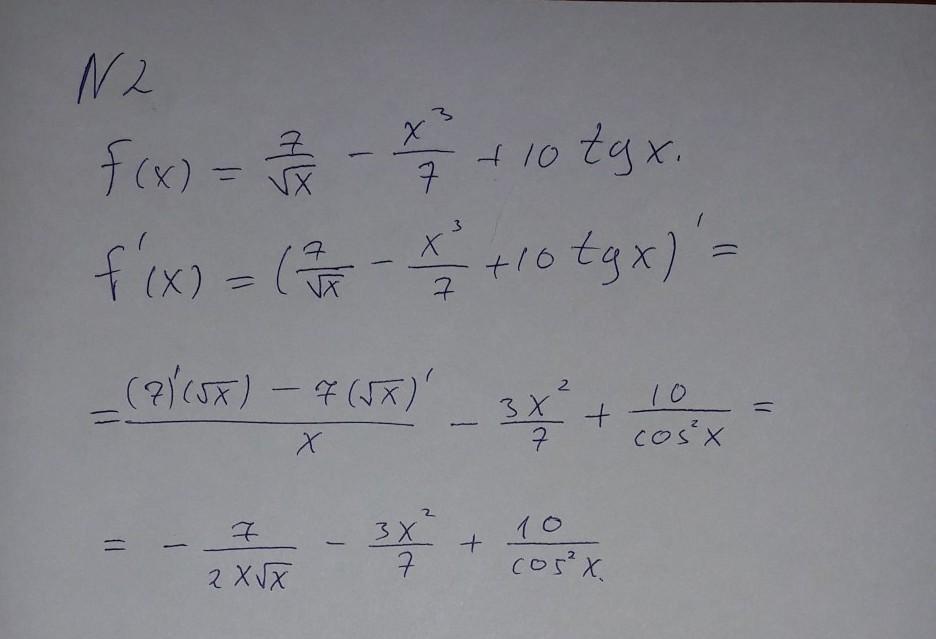 N 2
f(x) = 7/√x - x³/7 + 10 tg x.
f'(x) = (7/√x - x³/7 + 10 tg x)' =
= ((7)'(√x) - 7(√x)')/x - 3x²/7 + 10/cos²x =
= - 7/(2x√x) - 3x²/7 + 10/cos²x.